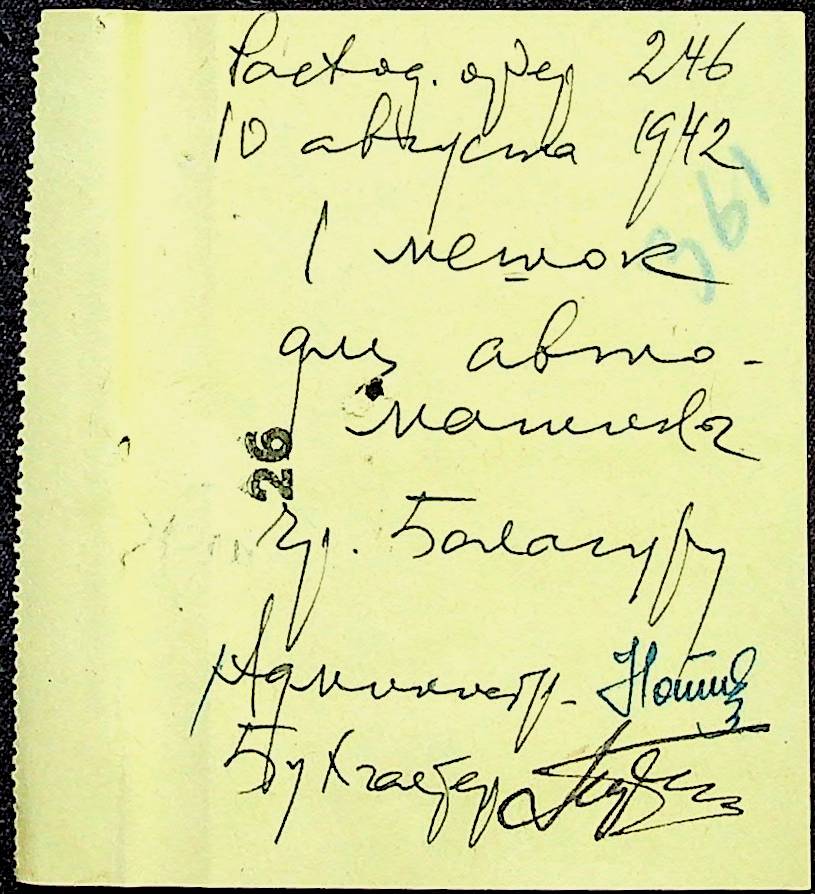 Расход. ордер 246
10 августа 1942
961
1 мешок
для авто-
машины
26
гр. Балацуру
Администр.
Бухгалтер